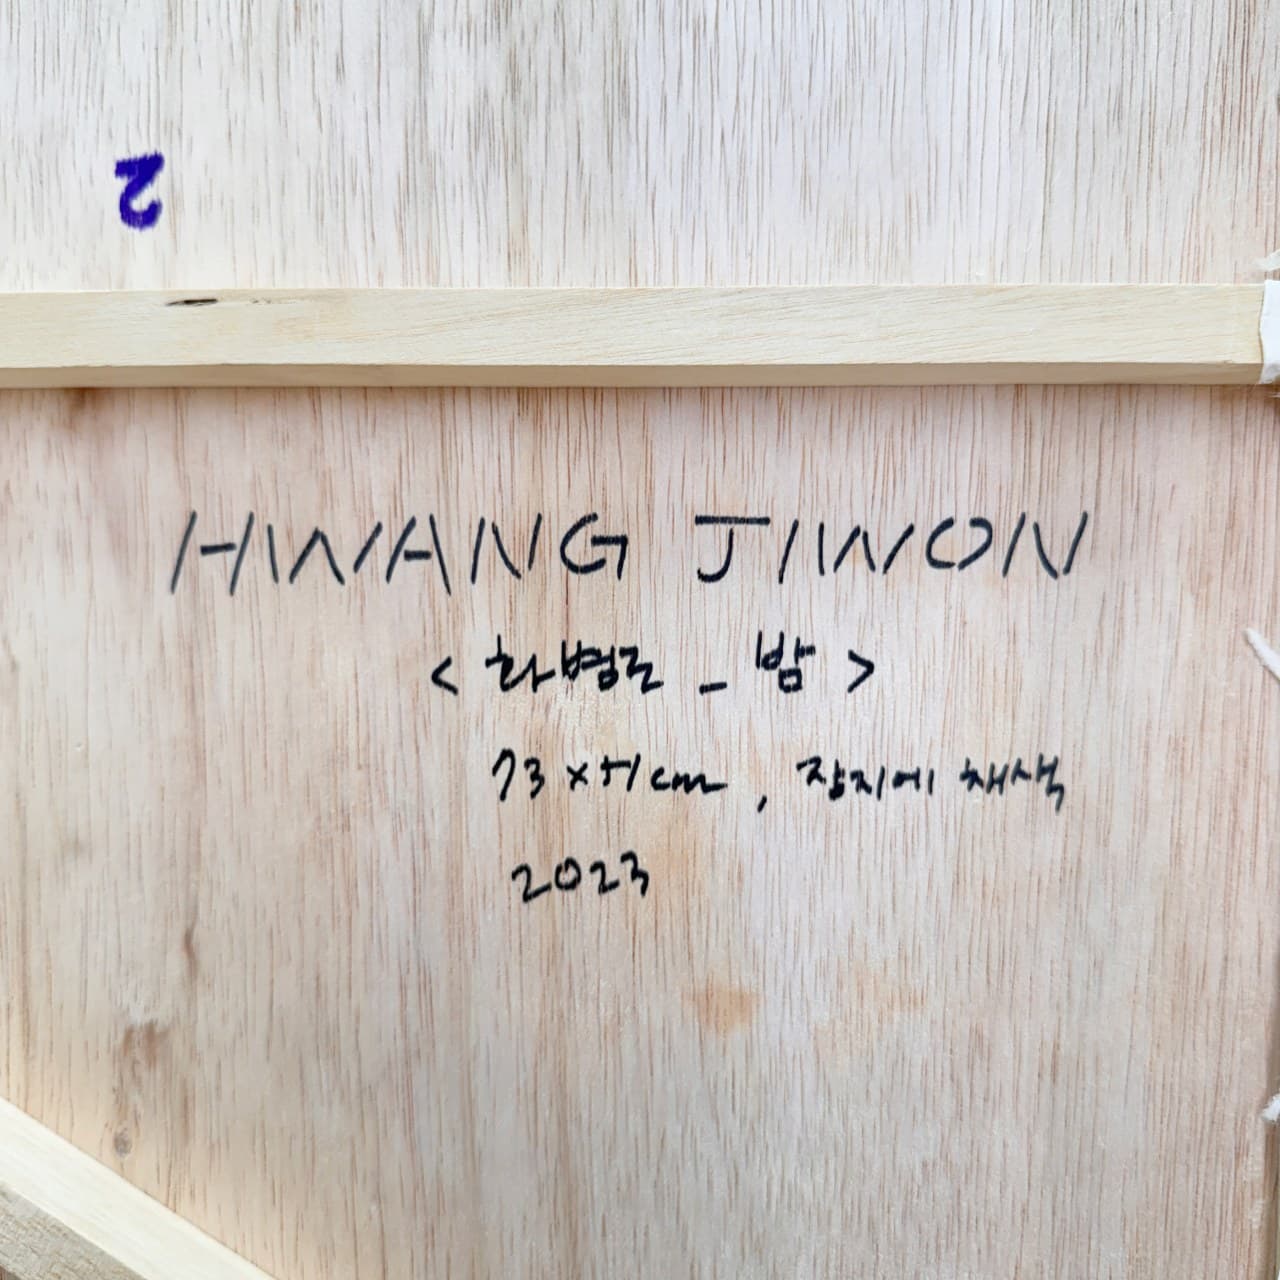 2
HWANG JIWON
< 화병도 _ 밤 >
73 x 51 cm , 장지에 채색
2023